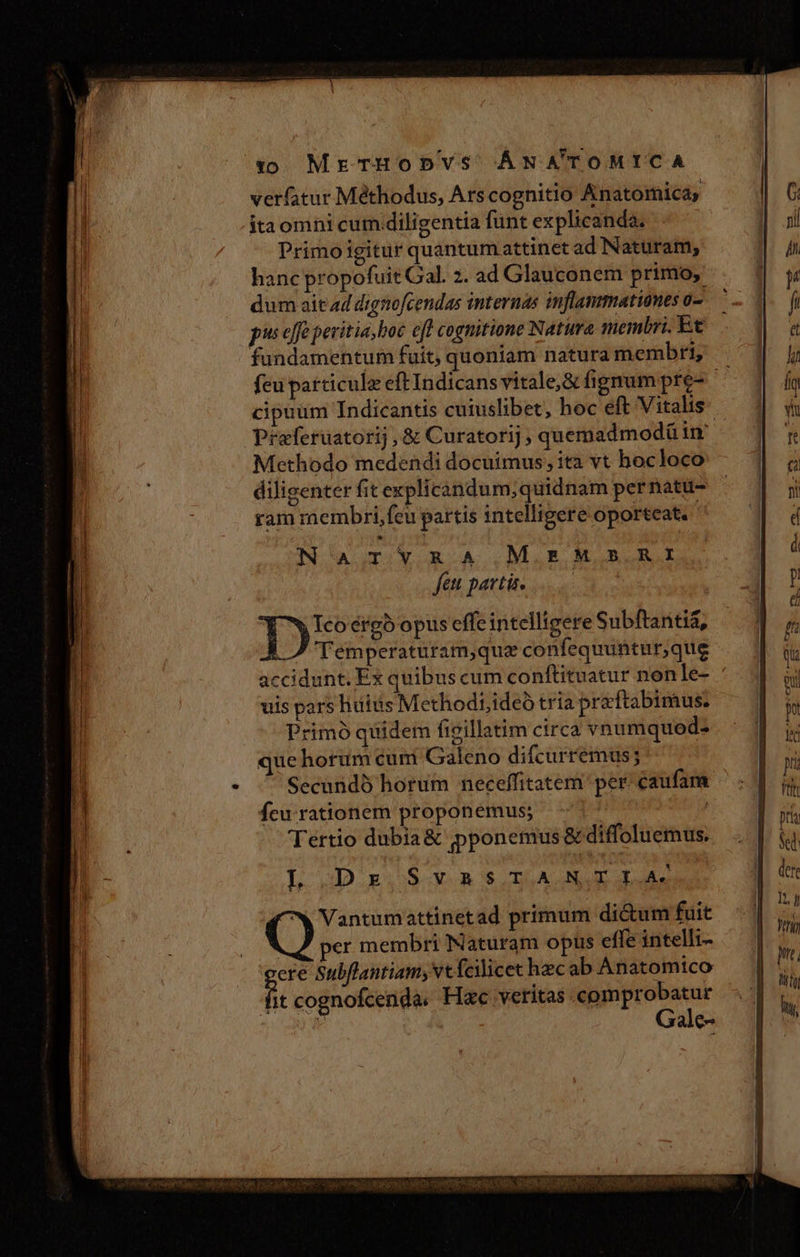 10 METHODVS ANATOMICA
verſatur Méthodus, Ars cognitio Anatomica,
ita omni cum diligentia ſunt explicanda.
Primo igitur quantum attinet ad Naturam,
hanc propoſuit Gal. 2. ad Glauconem primo,
dum ait ad dignoſcendas internas inflammationes o-
pus eſſe peritia, hoc eſt cognitione Natura membri. Et
fundamentum fuit, quoniam natura membri,
ſeu particulæ eſt Indicans vitale, & ſignum pre-
cipuum Indicantis cuiuslibet, hoc eſt Vitalis
Præſeruatorij, & Curatorij, quemadmodũ in
Methodo medendi docuimus, ita vt hoc loco
diligenter ſit explicandum, quidnam per natu-
ram membri, ſeu partis intelligere oporteat.
NATVRA MEMBRI
ſeu partis.
DIco ergò opus eſſe intelligere Subſtantiã,
Temperaturam, quæ conſequuntur, quę
accidunt. Ex quibus cum conſtituatur non le-
uis pars huius Methodi, ideò tria præſtabimus.
Primò quidem ſigillatim circa vnumquod-
que horum cum Galeno diſcurremus;
Secundò horum neceſſitatem per cauſam
ſeu rationem proponemus;
Tertio dubia & ꝓponemus & diſſoluemus.
I. DE SVBSTANTIA.
QVantum attinet ad primum dictum fuit
per membri Naturam opus eſſe intelli-
gere Subſtantiam, vt ſcilicet hæc ab Anatomico
ſit cognoſcenda. Hæc veritas comprobatur
Gale-